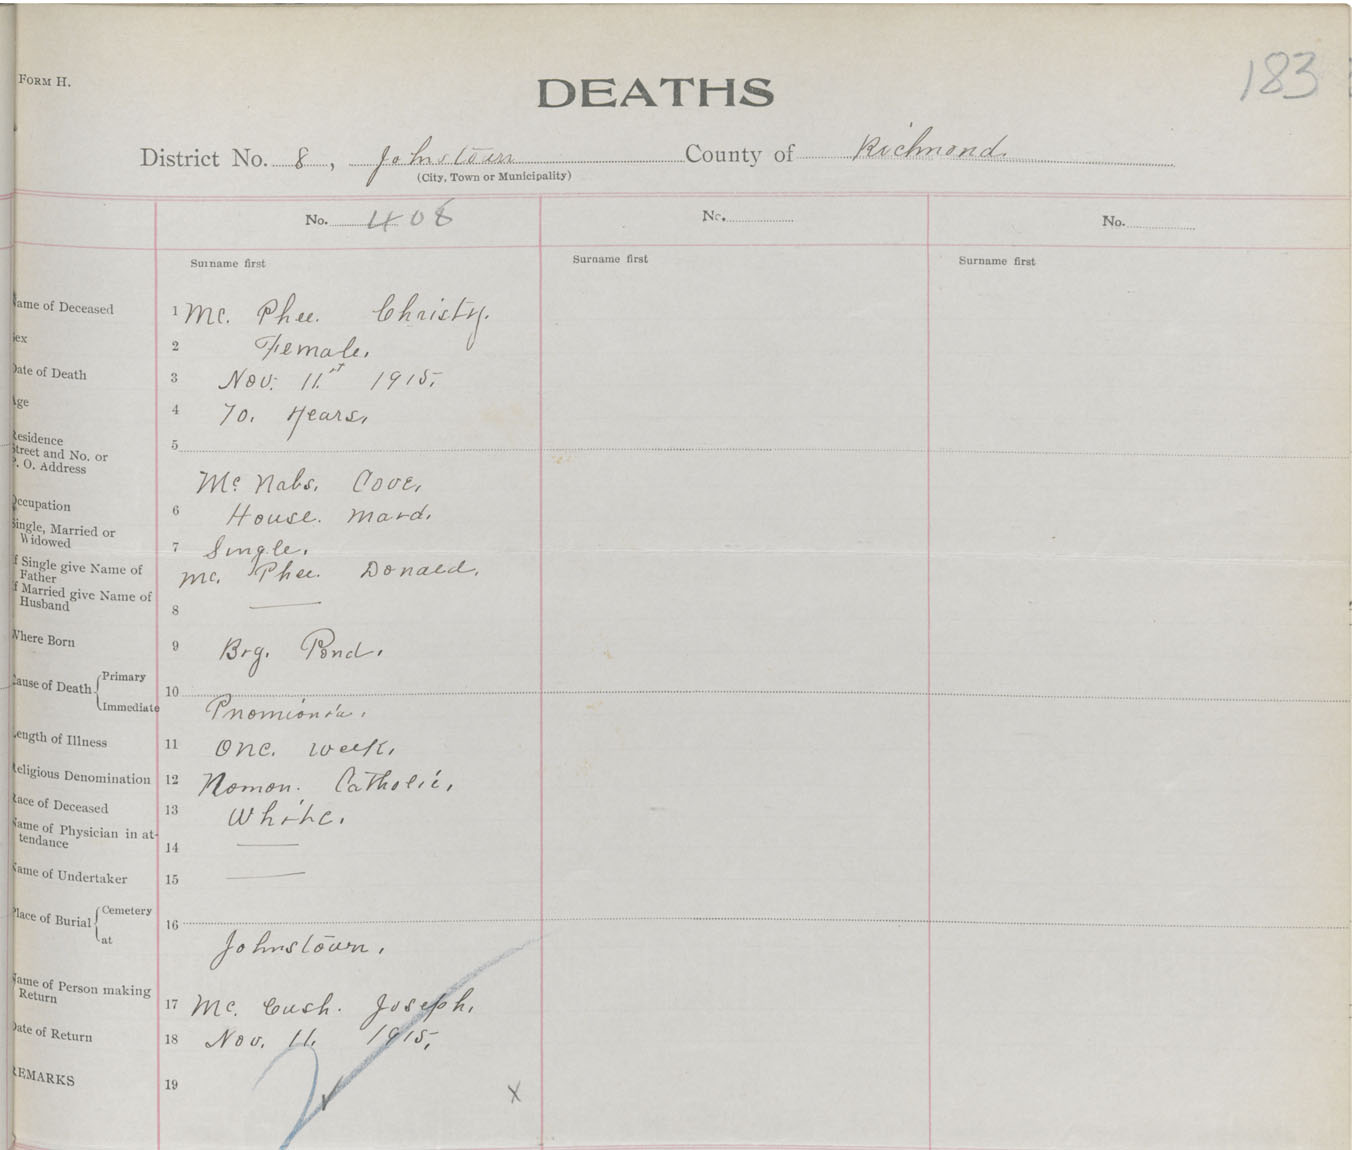 FORM H.
183
DEATHS
District No. 8, Johnstown County of Richmond.
(City, Town or Municipality)
No. 408 No. No.
Surname first Surname first Surname first
ame of Deceased 1 Mc. Phee. Christy.
ex 2 Female.
ate of Death 3 Nov. 11st 1915.
ge 4 70. Years.
esidence
treet and No. or 5
. O. Address
Mc Nabs. Cove.
ccupation 6 House. Mard.
ingle, Married or
Widowed 7 Single.
f Single give Name of
Father Mc. Phee. Donald.
f Married give Name of
Husband 8 —
here Born 9 Big. Pond.
ause of Death Primary 10
Immediate Pnomionia.
ength of Illness 11 One. week.
eligious Denomination 12 Romon. Catholic.
ace of Deceased 13 White.
ame of Physician in at-
tendance 14 —
ame of Undertaker 15 —
lace of Burial Cemetery 16
at Johnstown.
ame of Person making
Return 17 Mc. Cush. Joseph.
ate of Return 18 Nov. 11. 1915.
EMARKS 19
x